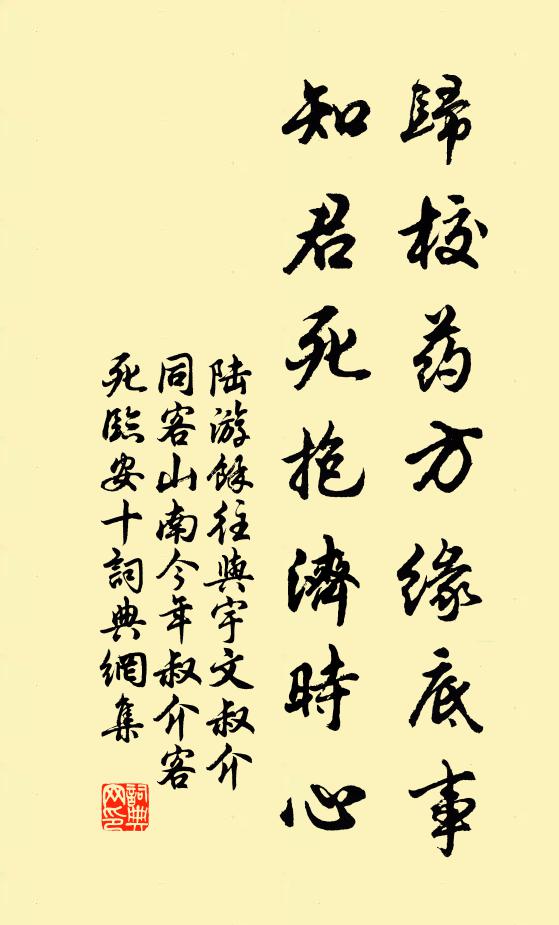 歸校药方缘底事
知君死抱濟時心
陆游餘往與宇文叔介
同客山南今年叔介客
死臨安十詞典網集
詞典網印